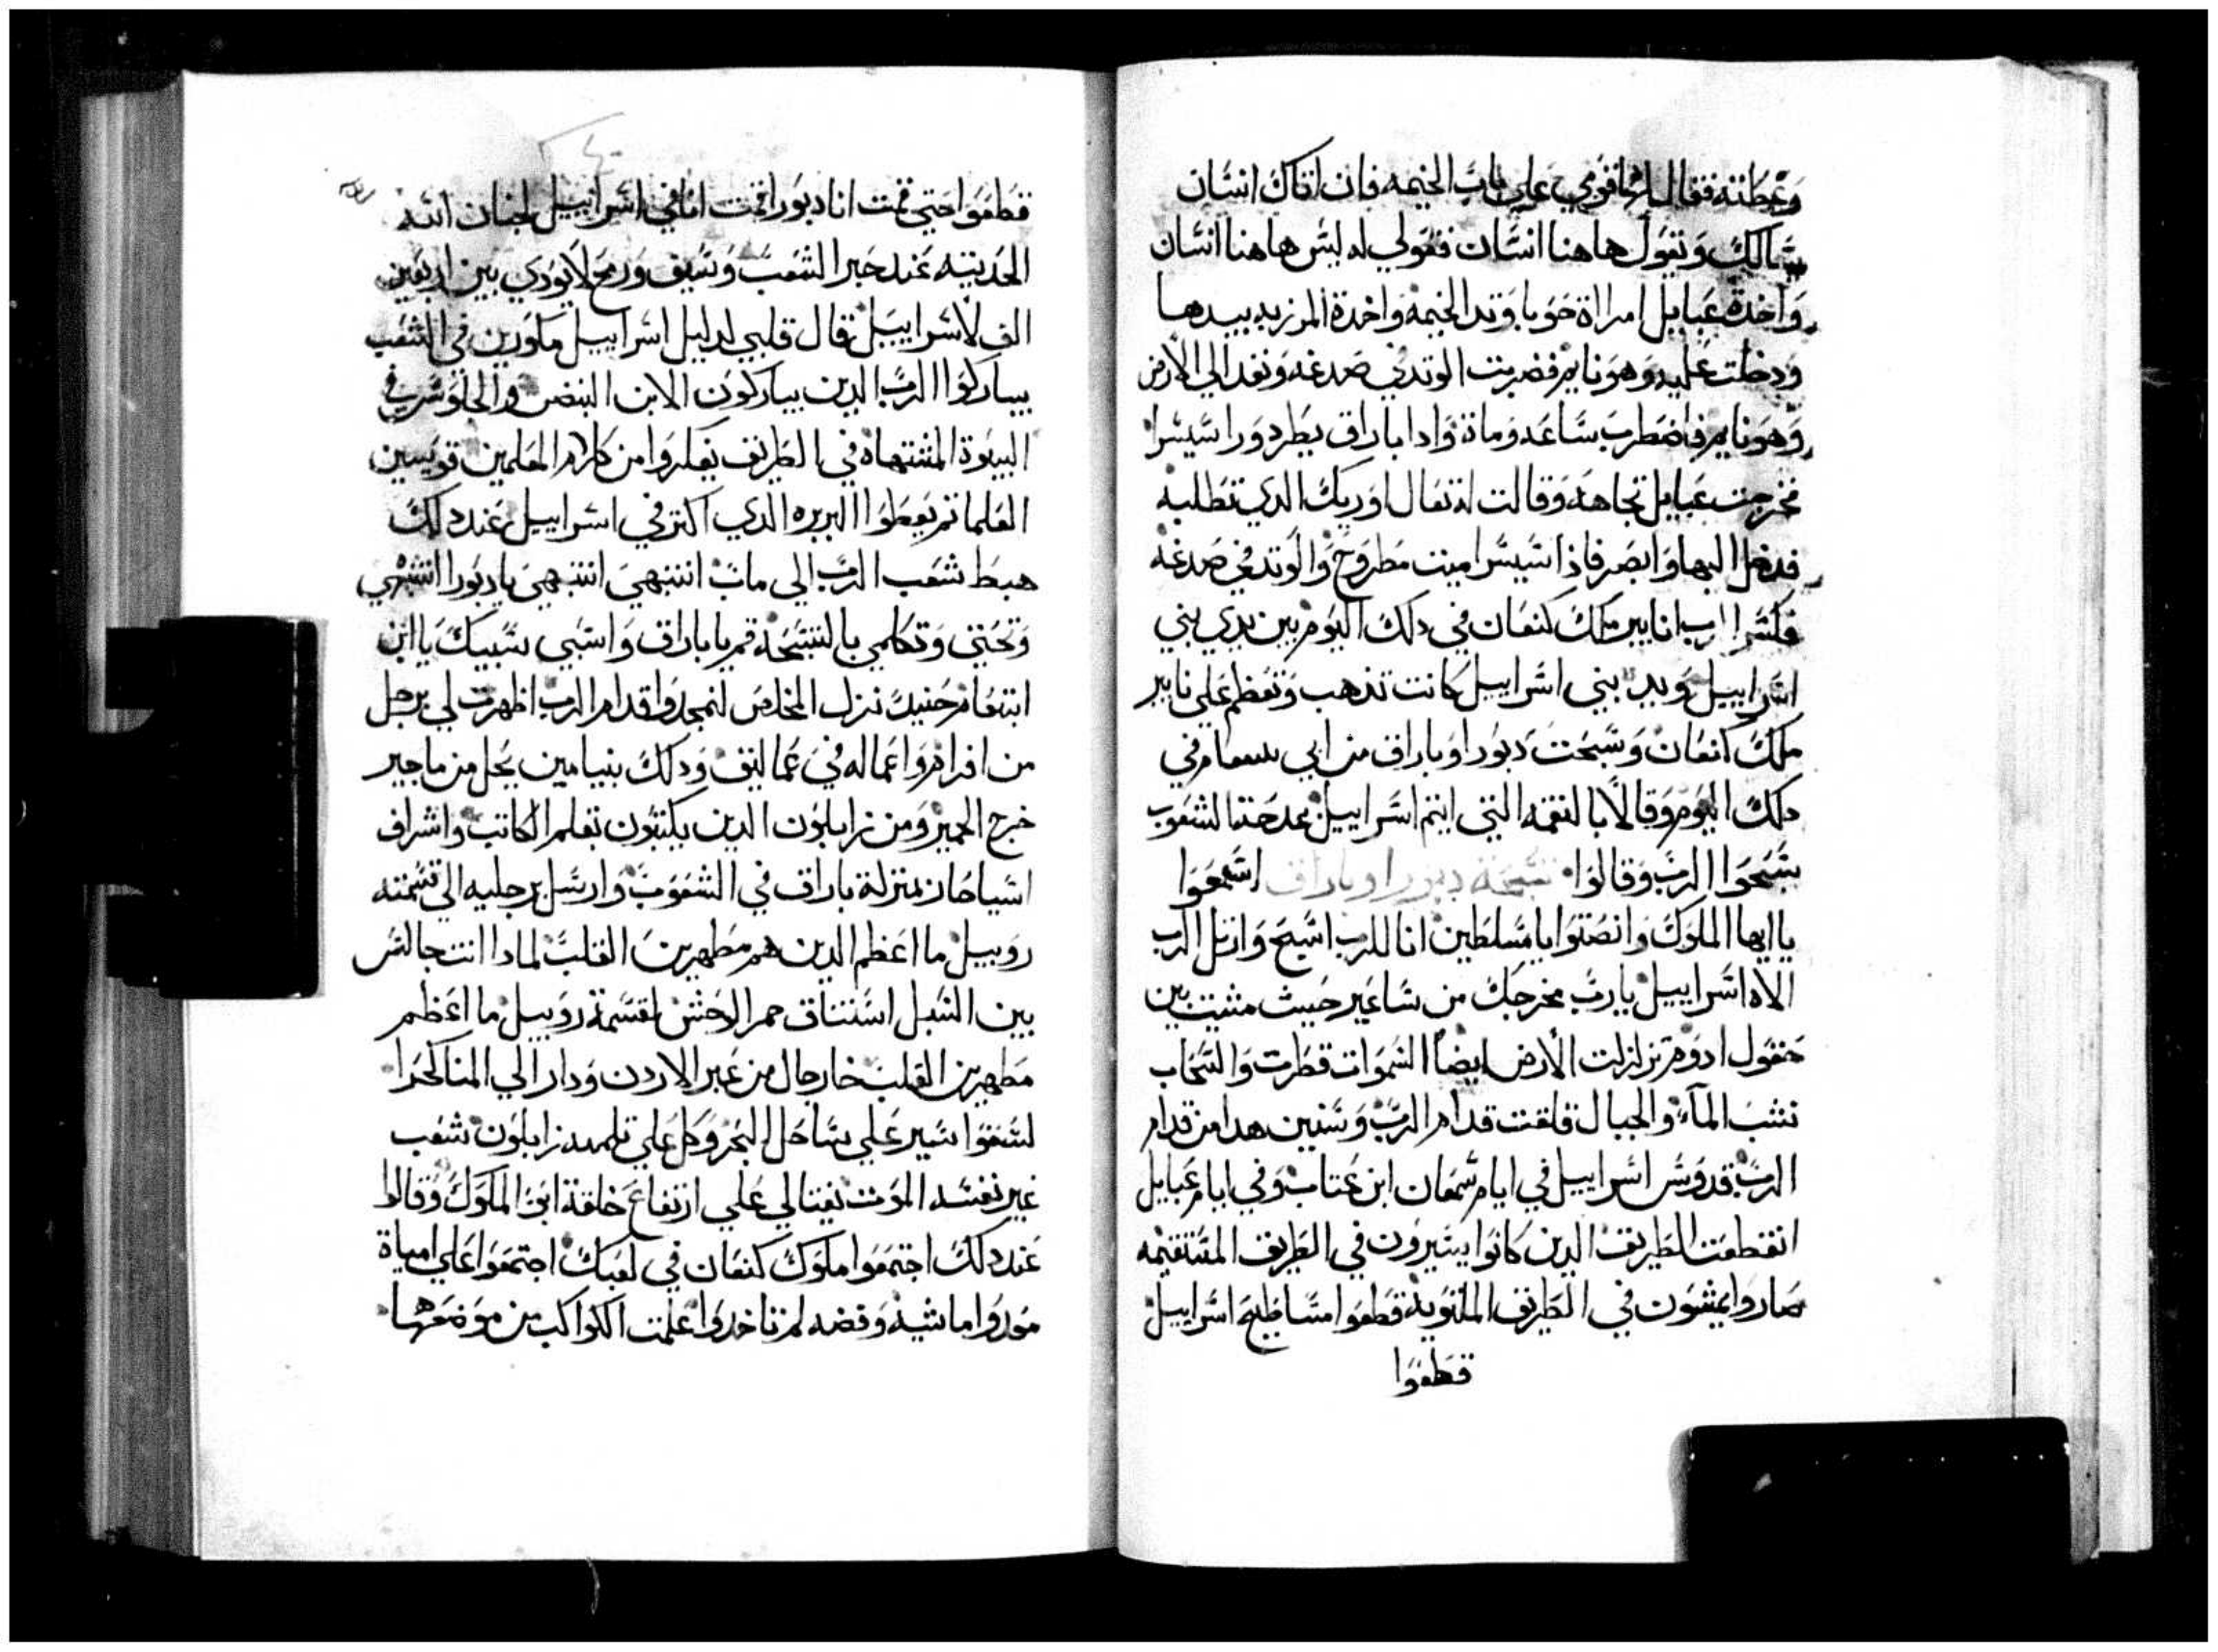 وغطته فقال لها قومي على باب الخيمه فان اتاك انسان
يسالك ويقول هاهنا انسان فقولي له ليس هاهنا انسان
واخدة عبايل امراة حوبا وتد الخيمة واخدة المرزبه بيدها
ودخلت عليه وهو نايم فضربت الوتد في صدغه ونفد الي الارض
وهو نايم فاضطرب ساعه وماة وادا باراق يطرد ورا سيسرا
فخرجت عبايل تجاهه وقالت له تعال اوريك الدي تطلبه
فدخل اليها وابصر فاذا سيسرا ميت مطروح والوتد في صدغه
فكسر الرب انابير ملك كنعان في دلك اليوم بين يدي بني
اسراييل ويد بني اسراييل كانت تذهب وتعظم علي نابير
ملك كنعان وسبحت دبورا وباراق من ابي سمعام في
دلك اليوم وقالا بالنقمه التي انتم اسراييل بمدحة الشعوب
سبحوا الرب وقالوا تسبحة دبورا وباراق اسمعوا
يا ايها الملوك وانصتوا يا مسلطين انا للرب اسبح وارتل للرب
الاه اسراييل يارب مخرجك من ساعير حيث مشيت بين
حقول ادوم تزلزلت الارض ايضا السموات قطرت والسحاب
نشب الماء والجبال قلقت قدام الرب وسنين هدا من قدام
الرب قدوس اسراييل في ايام شمعان ابن عتاب وفي ايام عبايل
انقطعت الطريق الدين كانوا يسيرون في الطريق المستقيمه
صاروا يمشون في الطريق الملتويه قطعوا مساطيح اسراييل
قطعوا
قطعوا حتي قمت انا دبورا قمت اما في اسراييل لجنان الله
الحديثه عند خبر الشعب وسيف ورمح لا يودي بين اربعين
الف لاسراييل قال قلبي لدليل اسراييل ماورين في الشعب
يباركوا الرب الدين يباركون الابن البنض والجلوس في
البيوة المشتهاه في الطريق يفكروا من كلام المعلمين قويسين
العلما تم يعطوا البريره الدي اكتر في اسراييل عند دلك
هبط شعب الرب الي ماب انتبهي انتبهي يا دبورا انتبهي
وتحتي وتكلمي بالتسبحة قم يا باراق واستبي سبيك يا ابن
ابنعام حنيد نزل المخلص لنمجدوا قدام الرب اظهرت لي برجل
من افرام واعماله في عماليق ودلك بنيامين يحل من ماجير
خرج الحمير ومن زابلون الدين يكتبون تعلم الكاتب واشراف
اسياخان بمنزلة باراق في الشعوب وارسل برجليه الي قسمته
روبيل ما اعظم الدين هم مطهرين القلب لمادا انت جالس
بين السبل استنتاق حمر الوحش لقسمة روبيل ما اعظم
مطهرين القلب خارجال من عبر الاردن ودار الي المناكحرا
لسفوا سير علي ساحل البحر وحل علي تلمه زابلون شعب
غير نفسه الموت نفتالي علي ارتفاع خلقة ابن الملوك وقالوا
عند دلك اجتمعوا ملوك كنعان في لعبك اجتمعوا علي امياة
موروا ماشيه وفضه لم تاخدوا اعلمت الكواكب من موضعها